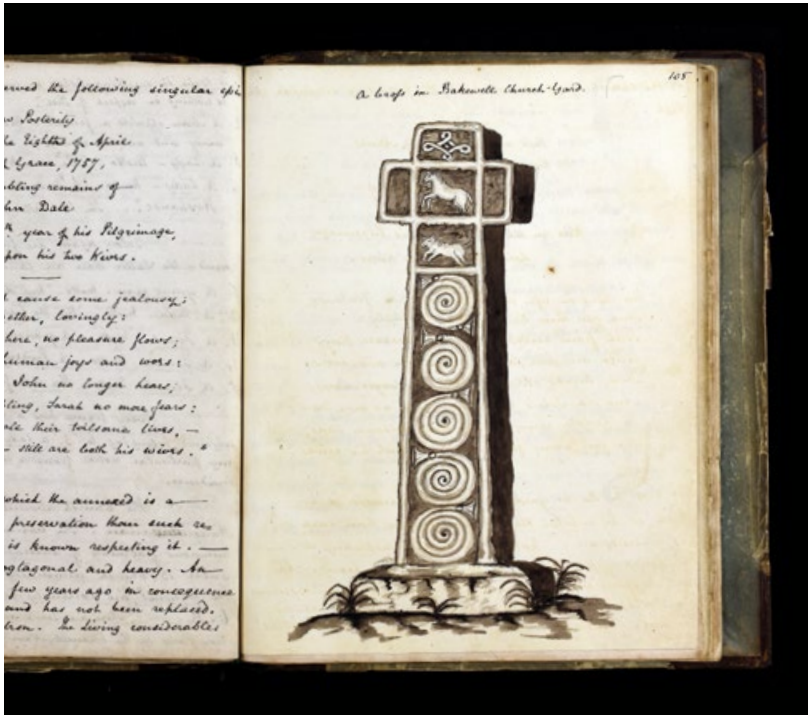 erved the following singular epi
Posterity
he Eighth of April
Grace, 1757,
remains of
hn Dale
th year of his Pilgrimage,
pon his two Wives.
cause some jealousy;
ether, lovingly:
here, no pleasure flows;
human joys and woes:
John no longer hears,
ting, Sarah no more fears:
their toilsome lives, —
still are both his wives."
which the annexed is a
preservation than such re,
is known respecting it. —
and heavy. An
few years ago in consequence
and has not been replaced.
tron. The Living considerable
105
A Cross in Bakewell Church-Yard.